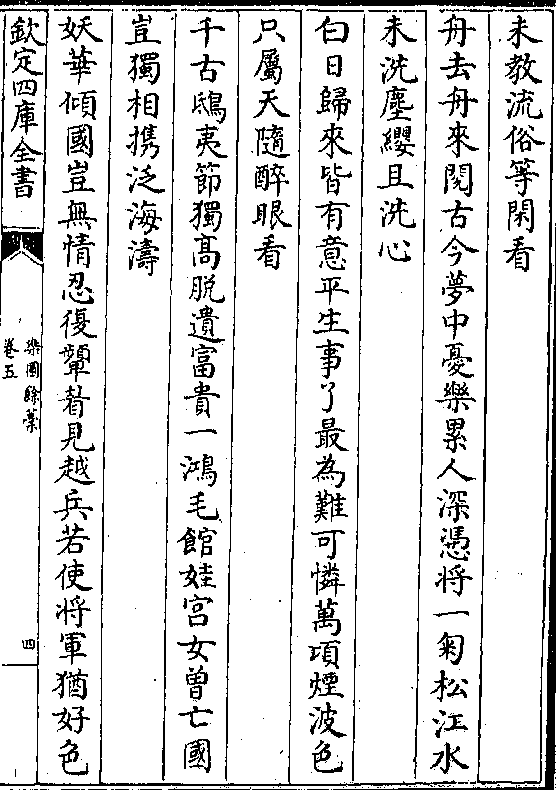 未教流俗等閑看
舟去舟來閱古今夢中憂樂累人深憑將一匊松江水
未洗塵纓且洗心
白日歸來皆有意平生事了最為難可憐萬頃煙波色
只屬天隨醉眼看
千古鴟夷節獨髙脱遺富貴一鴻毛館娃宮女曽亡國
豈獨相携泛海濤
妖華傾國豈無情忍復顰眉見越兵若使將軍猶好色
欽定四庫全書
樂圃餘藁
卷五
四